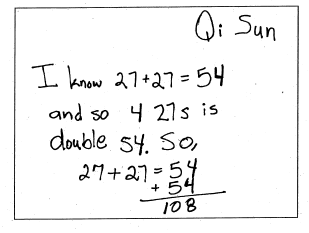 Qi Sun
I know 27+27=54
and so 4 27s is
double 54. So,
27+27=54
+54
108